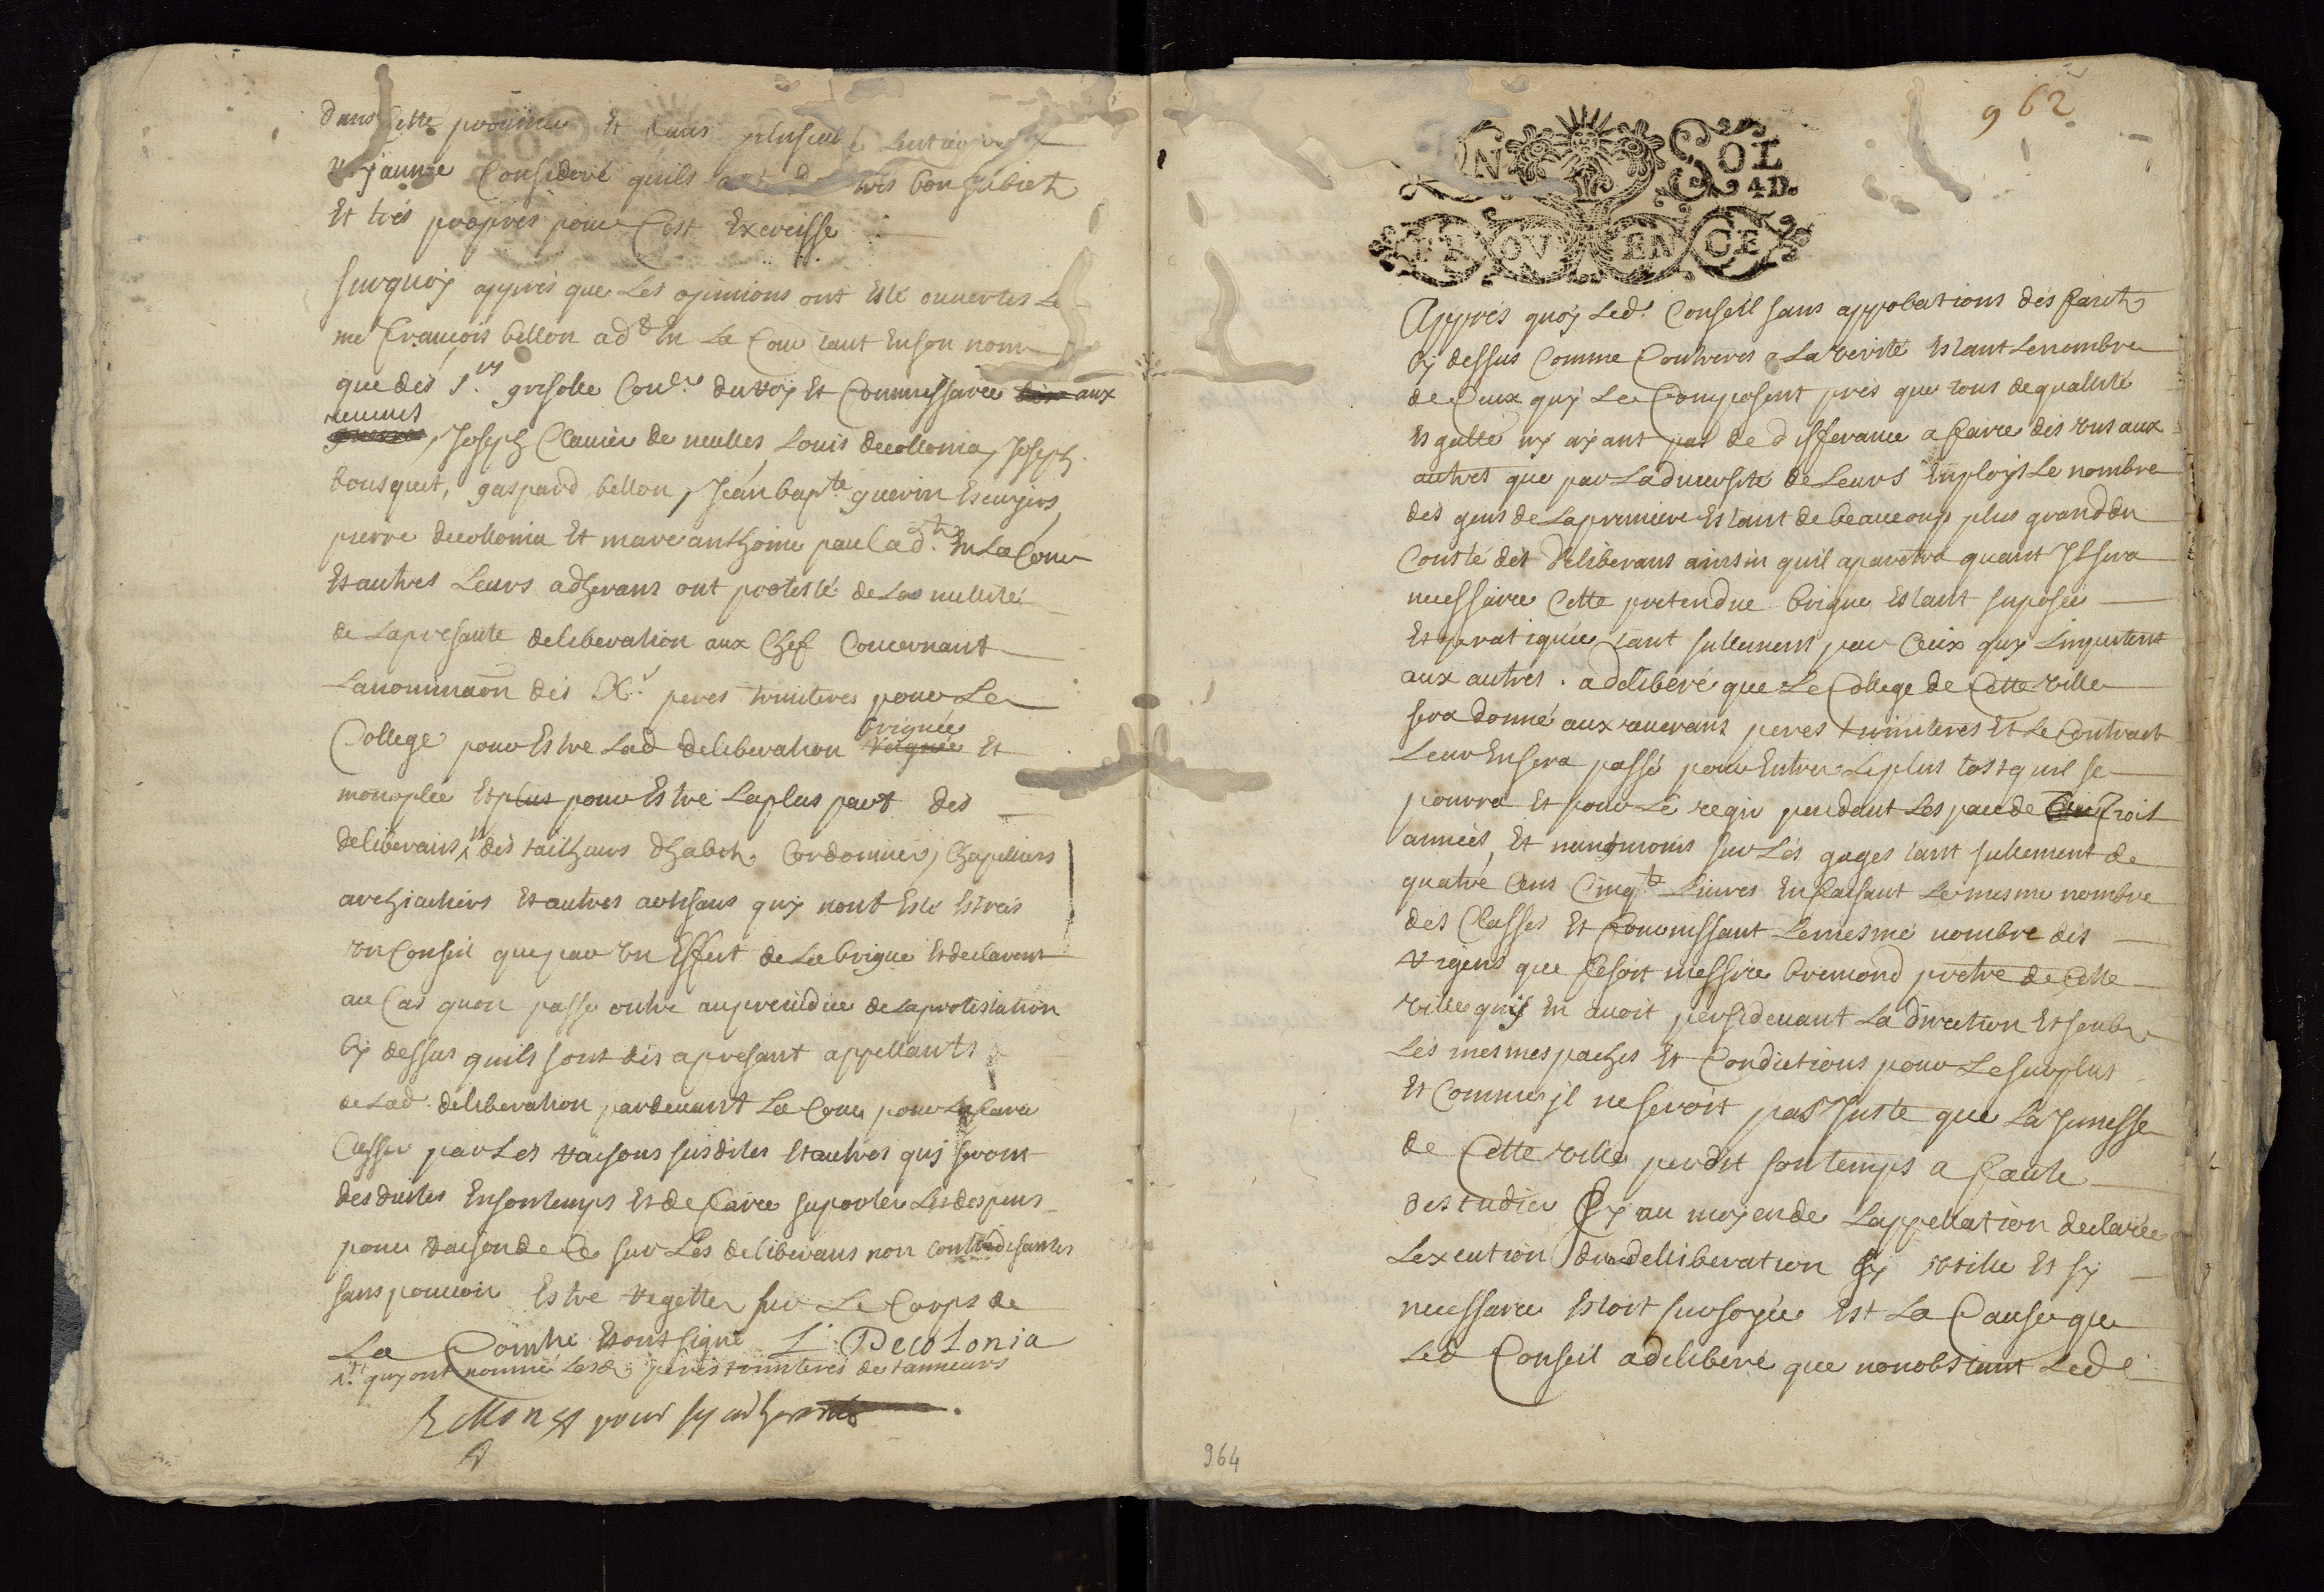 dans cette province Et dans plusieurs
royaume Consideré quils ont de tres bons subiets
Et trés propres pour Cest Exercisse
surquoy apprés que Les opinions ont Esté ouuertes Le
me françois bellon adt En La Cour tant En son nom
que des srs grisolle Conlr du Roy Et Commissaire aux
reuues
Joseph Clauier de neulles, Louis decollonia, Joseph
bousquet, gaspard bellon, Jean bapte guerin Escuyers,
pierre decollonia Et marc anthoine paul adts En La Cour
Et autres Leurs adherans ont protesté de La nullité
de La presante deliberation aux Chef Concernant
La nominaõn des Rds peres triniteres pour Le
College pour Estre Lad deliberation briguée Et
monoplée Et plus pour Estre La plus part des
deliberans des tailheurs dhabits Cordonniers, Chapelliers
archiachiers Et autres artisans quy nont Esté Estrés
En Conseil que par vn Effect de La brigue Et declarent
au Cas quon passe outre au preiudice de La protestation
Cy dessus quils sont dés apresant appellants
de Lad. deliberation pardeuant La Cour pour La faire
Cesser par Les raisons susdites Et autres quy seront
desduites En son temps Et de faire suporter Les despens
pour raison de Ce sur Les deliberans non contredisantes
sans pouuoir Estre regetter sur Le Corps de
La Comté Et ont signé L. Decolonia
quy ont nommé Lesd. peres triniteres de tanneurs
Bellon adt pour sy adherants
962
UN SOL
4D.
PROVENCE
Apprés quoy Led. Conseil sans approbations dés faits
Cy dessus Comme Contreres a La verité Estant Le nombre
de Ceux quy Le Composent prés que tous de qualité
Esgalle ny ayant pas de differance a faire dés vns aux
autres que par La diuersité de Leurs Employs Le nombre
dés gens de La premiere Estant de beaucoup plus grand du
Cousté des deliberans ainsin quil aparetra quant Il sera
necessaire Cette pretendue brigue Estant suposée
Et pratiquée tant sullement par Ceux quy Limputent
aux autres. a deliberé que Le College de Cette ville
sera donné aux reuerans peres triniteres Et Le Contract
Leur En sera passé pour Entrer Le plus tost quil se
pourra Et pour Le regir pendant Lespace de trois
années, Et neangmoins sur Lés gages tant sullement de
quatre Cens Cinqte Liures En faisant Le mesme nombre
des Classes Et fournissant Le mesme nombre des
regens que fesoit messire bremond pretre de Cette
ville quy En auoit persideuant La direction Et soubz
Lés mesmes paches Et Condictions pour Le surplus
Et Comme jl ne seroit pas Juste que La Junesse
de Cette ville perdit son temps a faute
destudier Sy au moyen de Lappellation declarée
Lexcution dune delliberation sy vtille Et sy
necessaire Estoit sursoyée Est La Cause que
Led Conseil a deliberé que nonobstant Lade
964